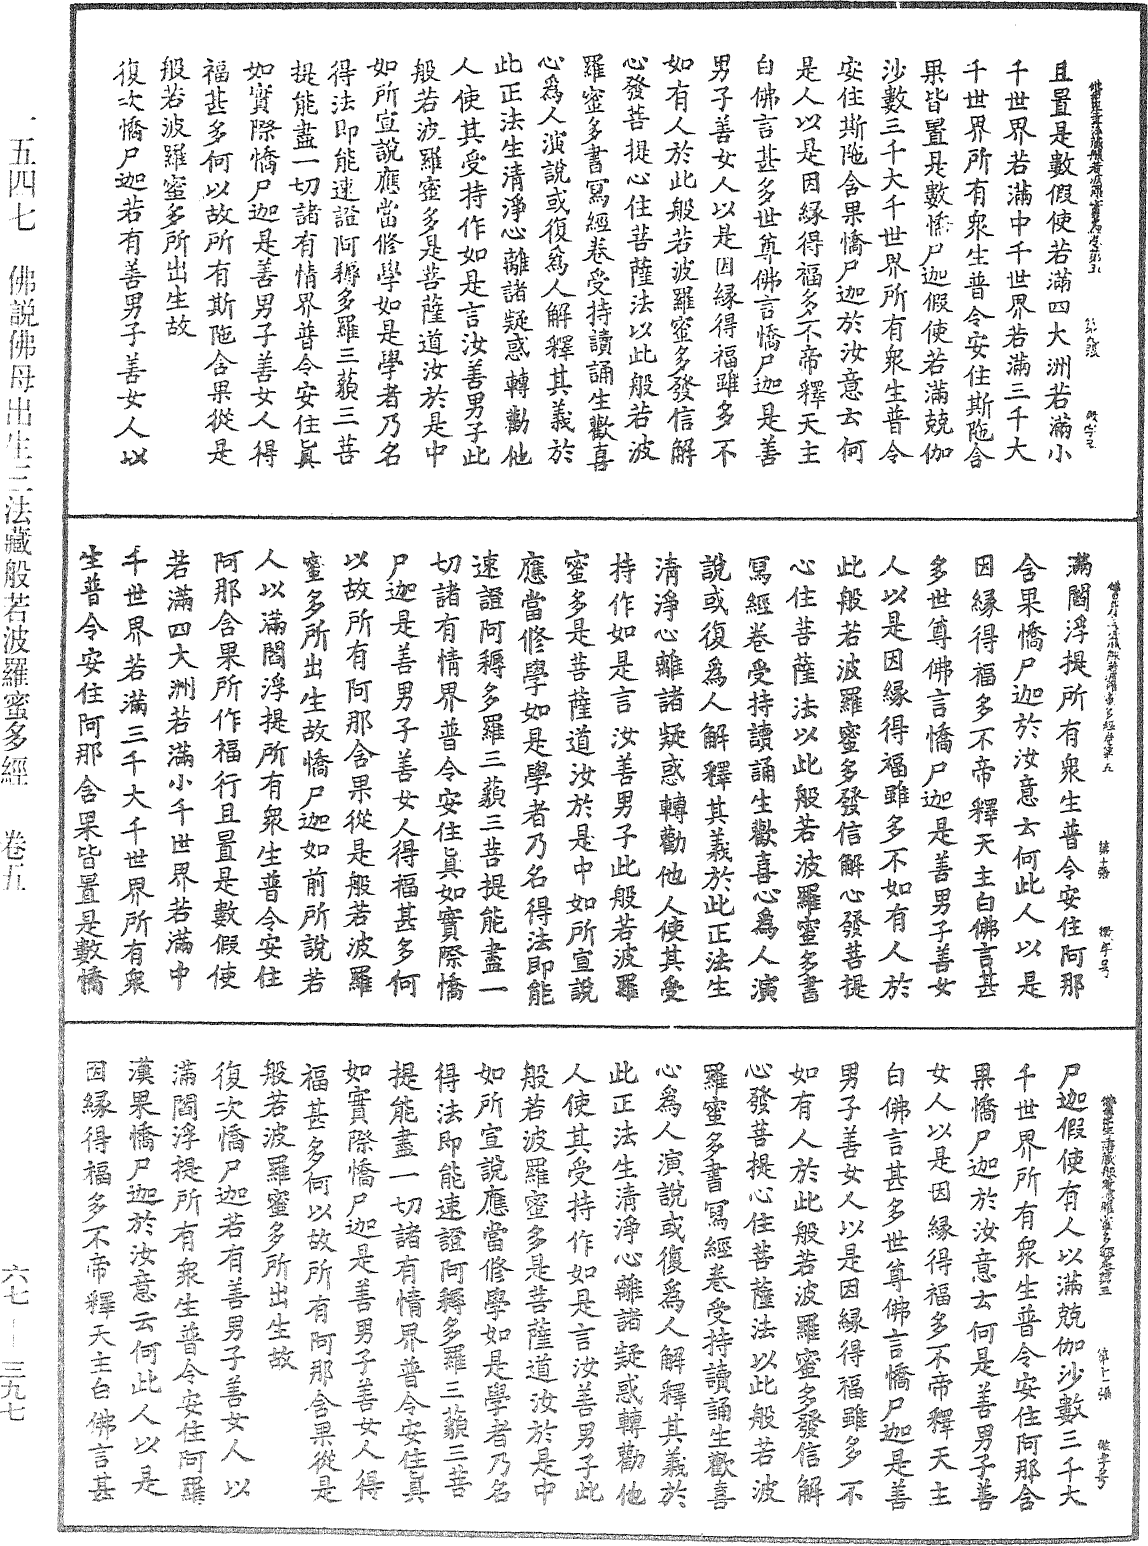 且置是數假使若滿四大洲若滿小
千世界若滿中千世界若滿三千大
千世界所有衆生普令安住斯陁含
果皆置是數憍尸迦假使若滿兢伽
沙數三千大千世界所有衆生普令
安住斯陁含果憍尸迦於汝意云何
是人以是因緣得福多不帝釋天主
白佛言甚多世尊佛言憍尸迦是善
男子善女人以是因緣得福雖多不
如有人於此般若波羅蜜多發信解
心發菩提心住菩薩法以此般若波
羅蜜多書寫經卷受持讀誦生歡喜
心爲人演說或復爲人解釋其義於
此正法生清淨心離諸疑惑轉勸他
人使其受持作如是言汝善男子此
般若波羅蜜多是菩薩道汝於是中
如所宣說應當修學如是學者乃名
得法即能速證阿耨多羅三藐三菩
提能盡一切諸有情界普令安住眞
如實際憍尸迦是善男子善女人得
福甚多何以故所有斯陁含果從是
般若波羅蜜多所出生故
復次憍尸迦若有善男子善女人以
滿閻浮提所有衆生普令安住阿那
含果憍尸迦於汝意云何此人以是
因緣得福多不帝釋天主白佛言甚
多世尊佛言憍尸迦是善男子善女
人以是因緣得福雖多不如有人於
此般若波羅蜜多發信解心發菩提
心住菩薩法以此般若波羅蜜多書
寫經卷受持讀誦生歡喜心爲人演
說或復爲人解釋其義於此正法生
清淨心離諸疑惑轉勸他人使其受
持作如是言汝善男子此般若波羅
蜜多是菩薩道汝於是中如所宣說
應當修學如是學者乃名得法即能
速證阿耨多羅三藐三菩提能盡一
切諸有情界普令安住眞如實際憍
尸迦是善男子善女人得福甚多何
以故所有阿那含果從是般若波羅
蜜多所出生故憍尸迦如前所說若
人以滿閻浮提所有衆生普令安住
阿那含果所作福行且置是數假使
若滿四大洲若滿小千世界若滿中
千世界若滿三千大千世界所有衆
生普令安住阿那含果皆置是數憍
尸迦假使有人以滿兢伽沙數三千大
千世界所有衆生普令安住阿那含
果憍尸迦於汝意云何是善男子善
女人以是因緣得福多不帝釋天主
白佛言甚多世尊佛言憍尸迦是善
男子善女人以是因緣得福雖多不
如有人於此般若波羅蜜多發信解
心發菩提心住菩薩法以此般若波
羅蜜多書寫經卷受持讀誦生歡喜
心爲人演說或復爲人解釋其義於
此正法生清淨心離諸疑惑轉勸他
人使其受持作如是言汝善男子此
般若波羅蜜多是菩薩道汝於是中
如所宣說應當修學如是學者乃名
得法即能速證阿耨多羅三藐三菩
提能盡一切諸有情界普令安住眞
如實際憍尸迦是善男子善女人得
福甚多何以故所有阿那含果從是
般若波羅蜜多所出生故
復次憍尸迦若有善男子善女人以
滿閻浮提所有衆生普令安住阿羅
漢果憍尸迦於汝意云何此人以是
因緣得福多不帝釋天主白佛言甚
一五四七　佛説佛母出生三法藏般若波羅蜜多經　卷五　六七—三九七